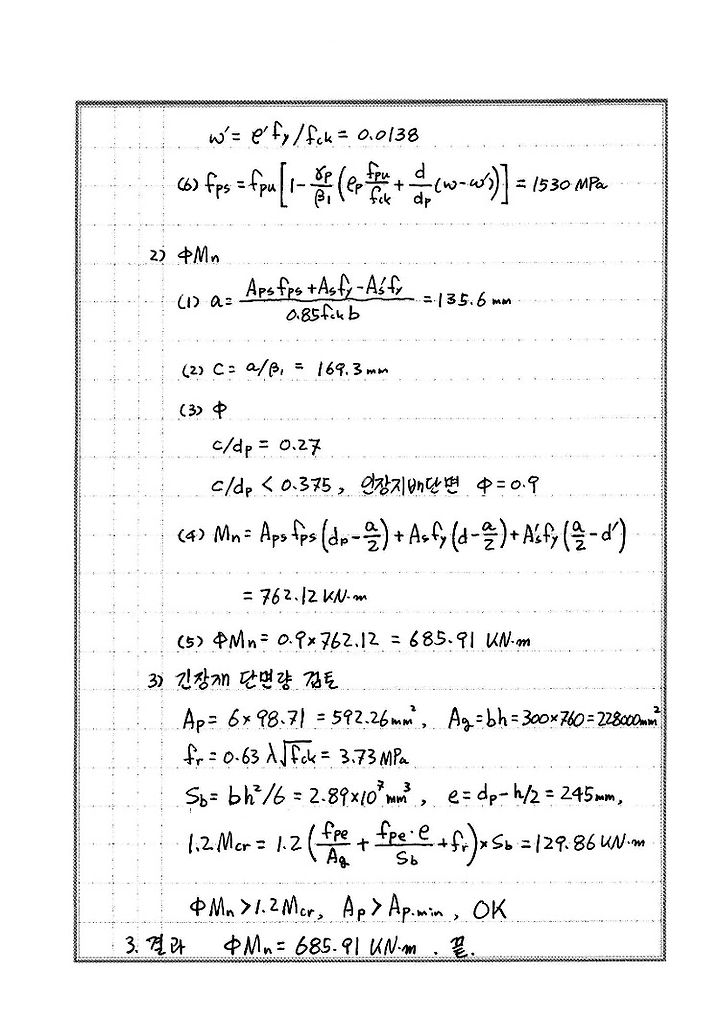 w' = ρ'fy/fck = 0.0138
(6) fps = fpu[1 - γp/β1(ρp fpu/fck + d/dp(w-w'))] = 1530 MPa
2) ΦMn
(1) a = (Aps fps + As fy - A's fy)/(0.85fck b) = 135.6 mm
(2) C = a/β1 = 169.3 mm
(3) Φ
c/dp = 0.27
c/dp < 0.375, 인장지배단면 Φ = 0.9
(4) Mn = Aps fps(dp - a/2) + As fy(d - a/2) + A's fy(a/2 - d')
= 762.12 KN·m
(5) ΦMn = 0.9×762.12 = 685.91 KN·m
3) 긴장재 단면량 검토
Ap = 6×98.71 = 592.26mm², Ag = bh = 300×760 = 228000mm²
fr = 0.63 λ√fck = 3.73 MPa
Sb = bh²/6 = 2.89×10⁷mm³, e = dp - h/2 = 245mm,
1.2Mcr = 1.2(fpe/Ag + fpe·e/Sb + fr)×Sb = 129.86 KN·m
ΦMn > 1.2Mcr, Ap > Ap.min, OK
3. 결과 ΦMn = 685.91 KN·m. 끝.